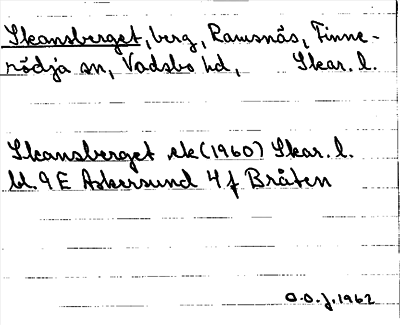 Skansberget, berg, Ramsnäs, Finne-
rödja sn, Vadsbo hd, Skar. l.
Skansberget ek (1960) Skar. l.
bl. 9 E Askersund 4 f Bråten
O.O.J. 1962